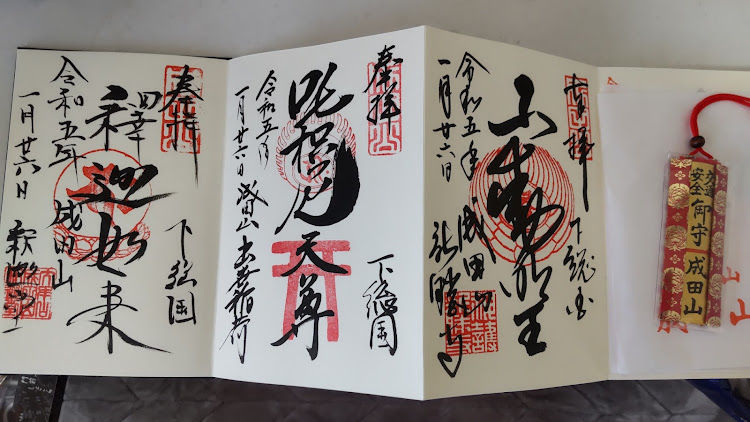 交通
安全
御守 成田山
奉拝 下総国
不動明王
成田山 新勝寺
令和五年
一月廿六日
奉拝 下総国
吒枳尼天尊
令和五年
一月廿六日 成田山 出世稲荷
奉拝 下総国
釋迦如来
成田山 釈迦堂
令和五年
一月廿六日